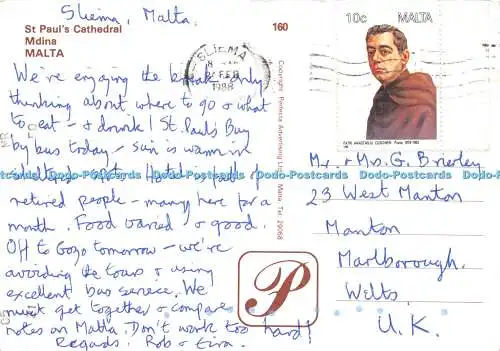 Sliema, Malta.
St Paul's Cathedral
Mdina
MALTA
160
SLIEMA
FEB
1988
10c MALTA
We're enjoying the break, only
thinking about where to go & what
to eat – & drink! St. Paul's Bay
by bus today – Sun is warm in
shelters spot. Hotel full of
retired people – many here for a
month. Food varied & good.
Off to Gozo tomorrow – we're
avoiding the tours & using
excellent bus service. We
must get together & compare
notes on Malta. Don't work too hard!
Regards, Rob &
Copyright Perfecta Advertising Ltd. Malta Tel
Mr. & Mrs. G. Brierley
23 West Manton
Manton
Marlborough.
Wilts.
U.K.
P
Dodo-Postcards Dodo-Postcards Dodo-Postcards Dodo-Postcards Dodo-Postcards Dodo-Postcards